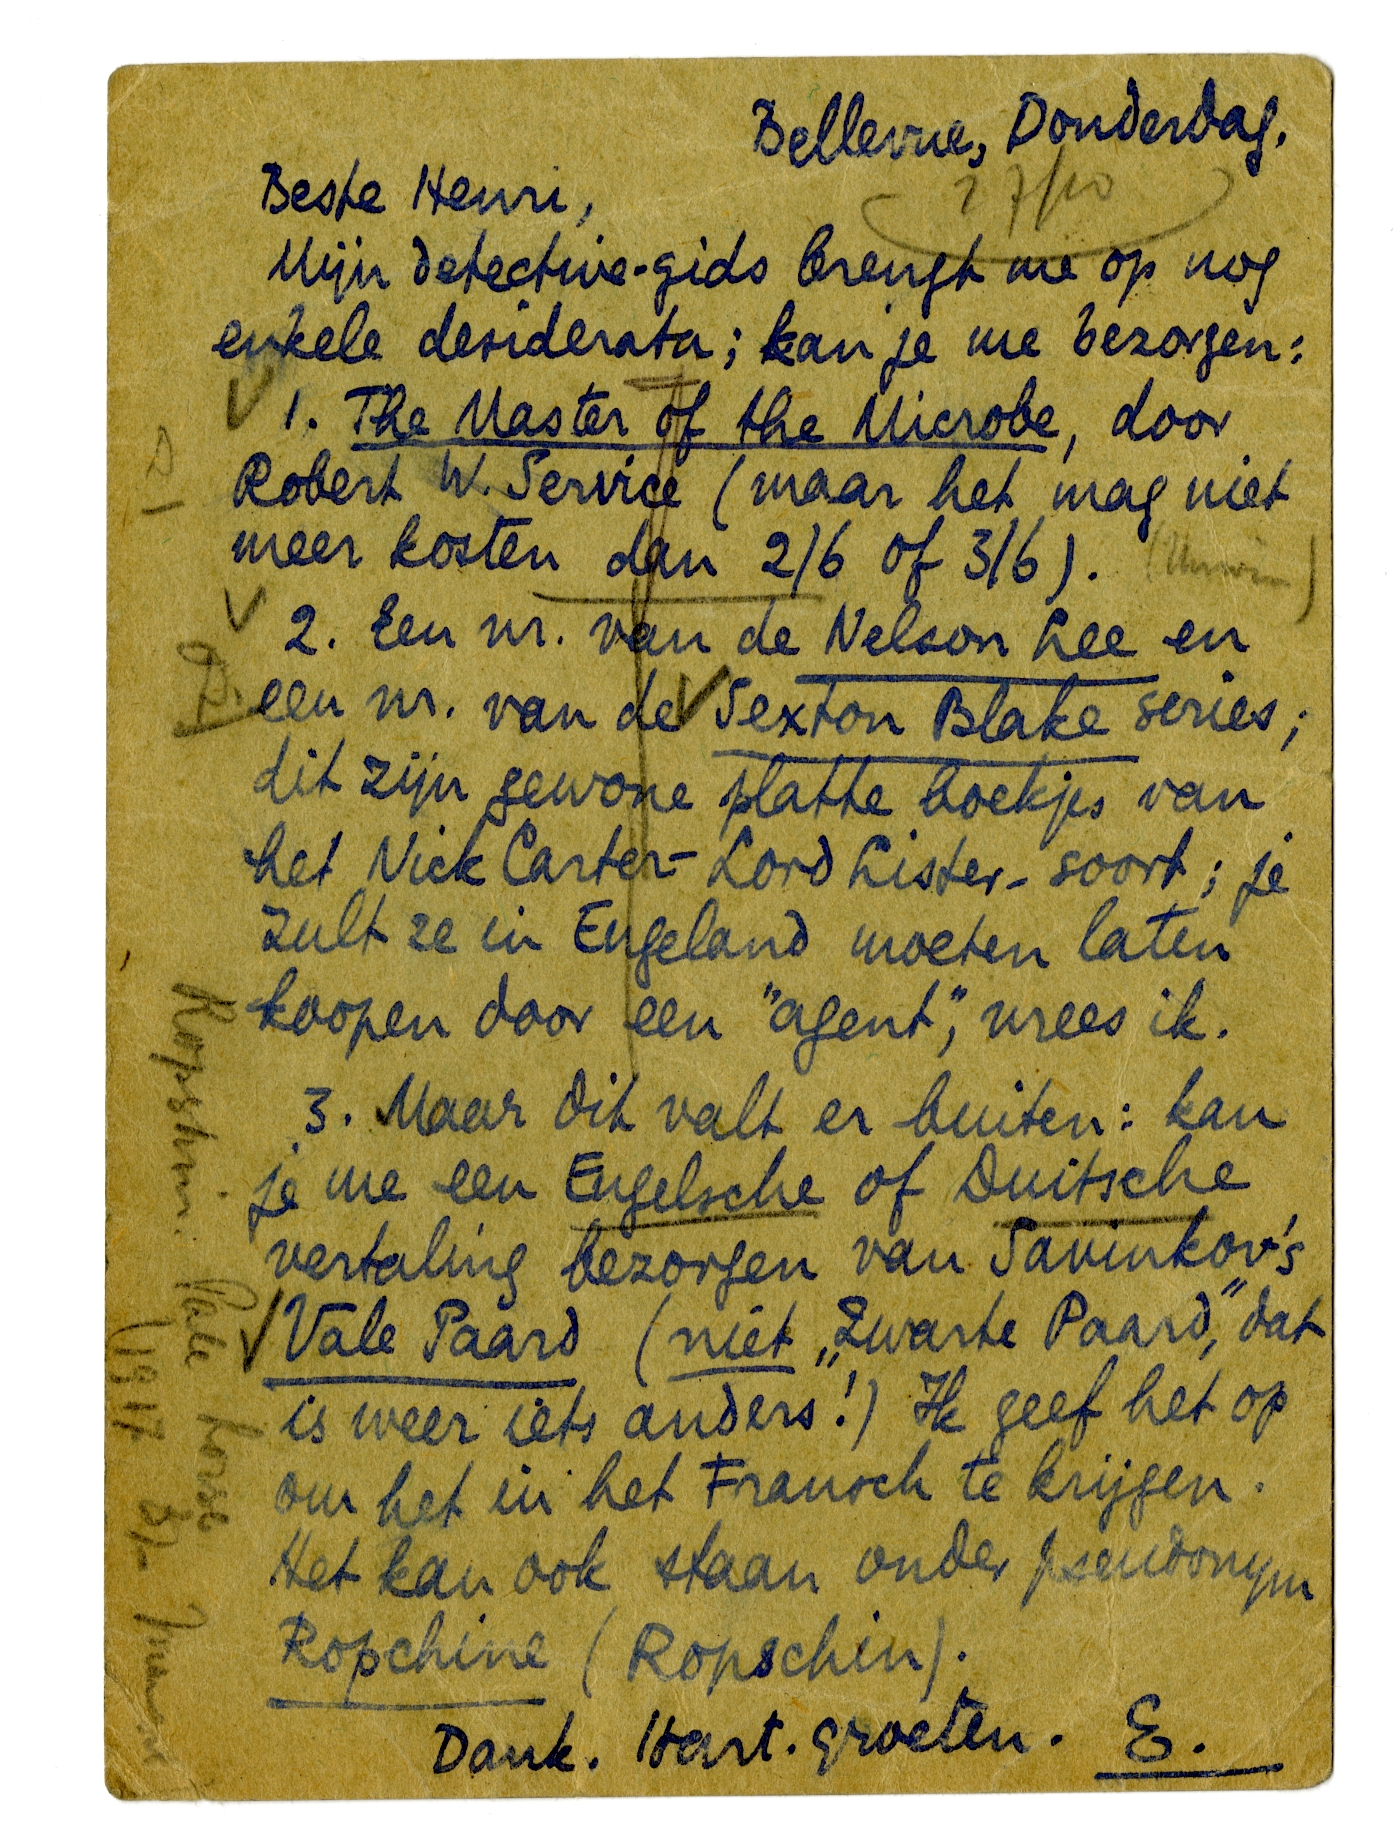 Bellevue, Donderdag.
27/10
Beste Henri,
Mijn detective-gids brengt me op nog
enkele desiderata; kan je me bezorgen:
1. The Master of the Microbe, door
Robert W. Service (maar het mag niet
meer kosten dan 2/6 of 3/6). (Unwin)
2. Een nr. van de Nelson Lee en
een nr. van de Sexton Blake series;
dit zijn gewone platte boekjes van
het Nick Carter- Lord Lister- soort; je
zult ze in Engeland moeten laten
koopen door een "agent", vrees ik.
3. Maar dit valt er buiten: kan
je me een Engelsche of Duitsche
vertaling bezorgen van Savinkov's
Vale Paard (niet „Zwarte Paard," dat
is weer iets anders!) Ik geef het op
om het in het Fransch te krijgen.
Het kan ook staan onder pseudonym
Ropchine (Ropschin).
Dank. Hart. groeten. E.
Ropshin: Pale horse
(1917